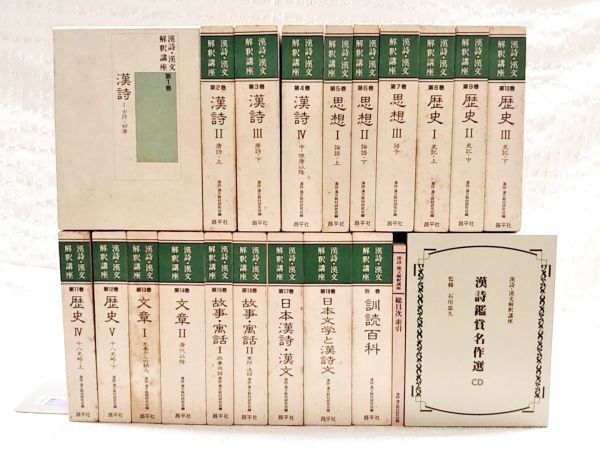 漢詩・漢文解釈講座
第1巻
漢詩
I 古詩・初唐
漢詩・漢文解釈講座
第2巻
漢詩II
唐詩・上
昌平社
漢詩・漢文解釈講座
第3巻
漢詩III
唐詩・下
昌平社
漢詩・漢文解釈講座
第4巻
漢詩IV
中・晩唐以降
昌平社
漢詩・漢文解釈講座
第5巻
思想I
論語・上
昌平社
漢詩・漢文解釈講座
第6巻
思想II
論語・下
昌平社
漢詩・漢文解釈講座
第7巻
思想III
諸子
昌平社
漢詩・漢文解釈講座
第8巻
歴史I
史記・上
昌平社
漢詩・漢文解釈講座
第9巻
歴史II
史記・中
昌平社
漢詩・漢文解釈講座
第10巻
歴史III
史記・下
昌平社
漢詩・漢文解釈講座
第11巻
歴史IV
十八史略・上
昌平社
漢詩・漢文解釈講座
第12巻
歴史V
十八史略・下
昌平社
漢詩・漢文解釈講座
第13巻
文章I
昌平社
漢詩・漢文解釈講座
第14巻
文章II
唐代以降
昌平社
漢詩・漢文解釈講座
第15巻
故事・寓話I
故事成語
昌平社
漢詩・漢文解釈講座
第16巻
故事・寓話II
昌平社
漢詩・漢文解釈講座
第17巻
日本漢詩・漢文
昌平社
漢詩・漢文解釈講座
第18巻
日本文学と漢詩文
昌平社
漢詩・漢文解釈講座
別巻
訓読百科
昌平社
漢詩・漢文解釈講座
総目次索引
漢詩・漢文解釈講座
漢詩鑑賞名作選
CD
監修 石川忠久
昌平社